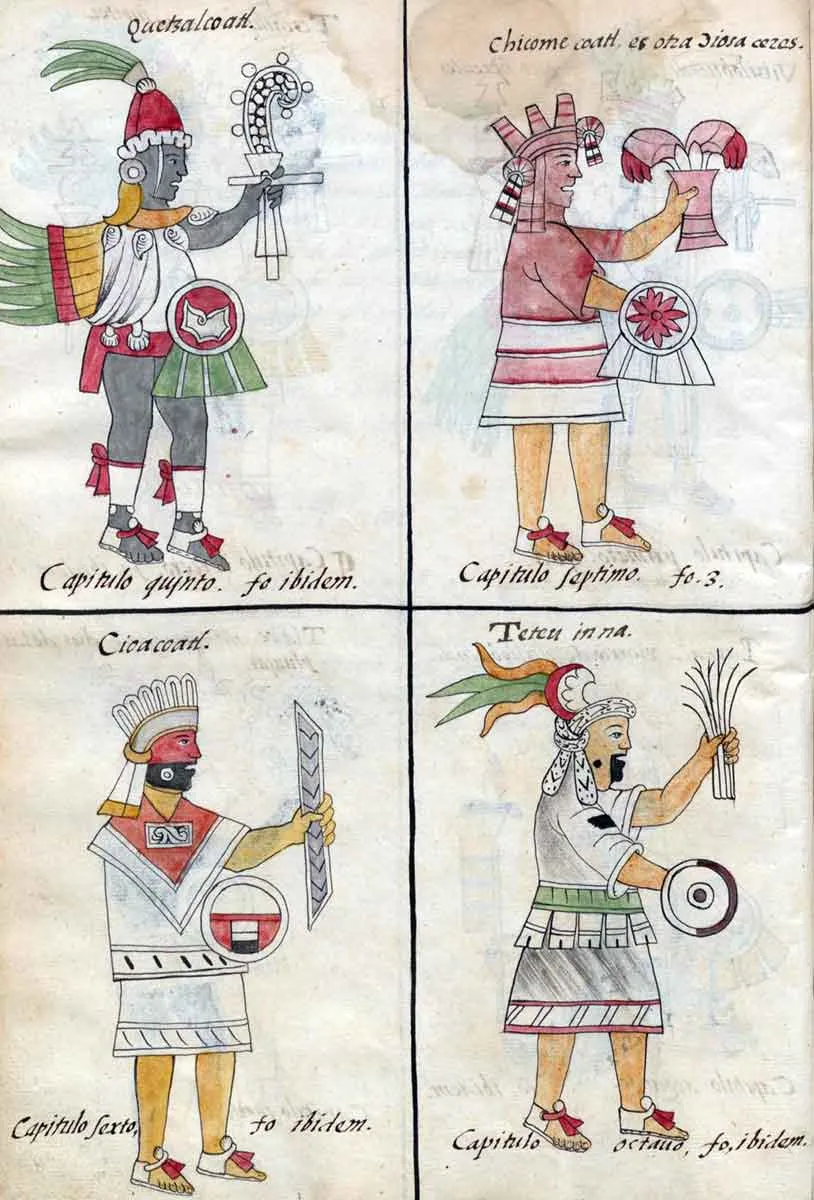 Quetzalcoatl.
Capitulo quinto. fo ibidem.
Chicome coatl, es otra Diosa ceres.
Capitulo septimo. fo. 3.
Cioacoatl.
Capitulo sexto, fo ibidem.
Teteu inna.
Capitulo octauo, fo, ibidem.